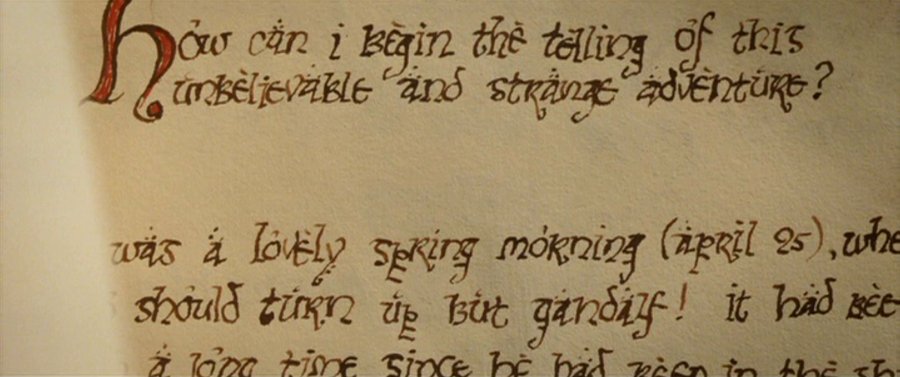 how can i begin the telling of this
unbelievable and strange adventure?
was a lovely spring morning (april 25), whe
should turn up but gandalf! it had bee
a long time since he had been in the sh